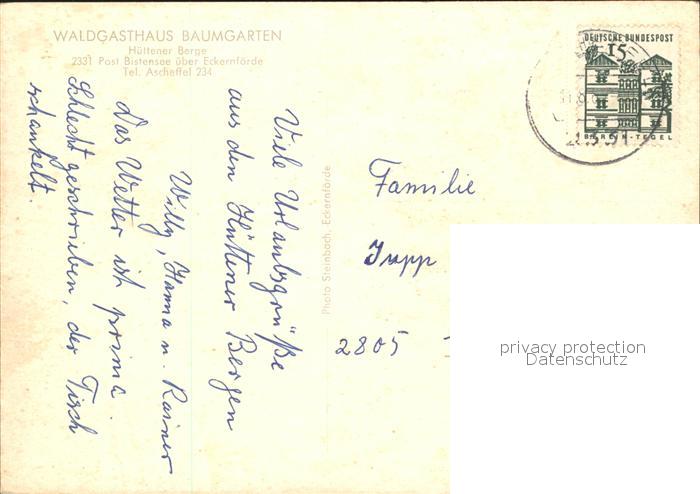 WALDGASTHAUS BAUMGARTEN
Hüttener Berge
2331 Post Bistensee über Eckernförde
Tel. Ascheffel 234
Viele Urlaubsgrüße
aus den Hüttener Bergen
Willy, Hanna u. Rainer
Das Wetter ist prima.
Schlecht geschrieben, der Tisch
schankelt.
Photo Steinbach, Eckernförde
DEUTSCHE BUNDESPOST
15
BERLIN-TEGEL
Familie
Jupp
2805
privacy protection
Datenschutz